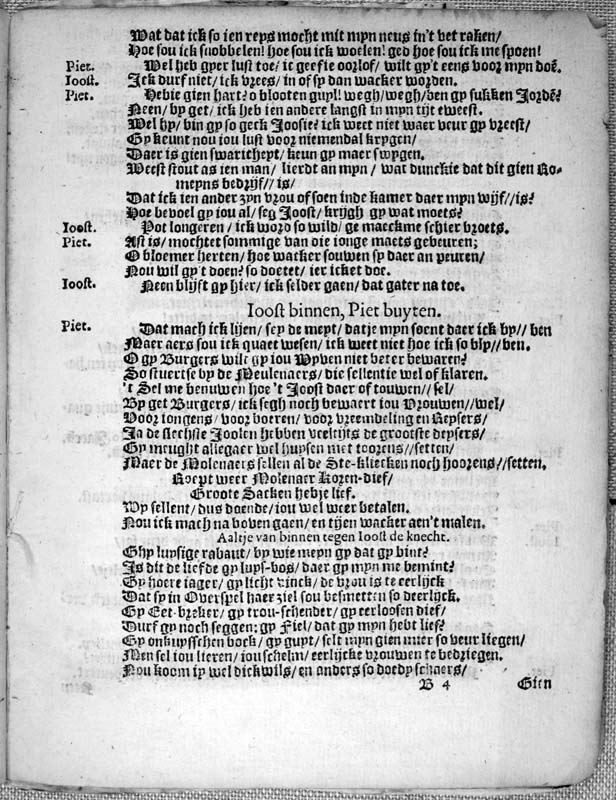 Wat dat ick so ien reys mocht mit myn neus in't vet raken/
Hoe sou ick snobbelen! hoe sou ick woelen! ged hoe sou ick me spoen!
Piet. Wel heb gyer lust toe/ ic geef ie oorlof/ wilt gy't eens voor myn doē.
Ioost. Ick durf niet/ ick vrees/ in of sy dan wacker worden.
Piet. Hebie gien hart? o blooten guyl! wegh/wegh/ben gy sukken Jordē?
Neen/ by get/ ick heb ien andere langst in myn tijt eweest.
Wel hy/ bin gy so geck Joosie? ick weet niet waer veur gy vreest/
Gy keunt nou iou lust voor niemendal krygen/
Daer is gien swaricheyt/ keun gy maer swygen.
Weest stout as ien man/ lierdt an myn/ wat dunckie dat dit gien Ro-
meyns bedrijf// is/
Dat ick ien ander zyn vrou of soen inde kamer daer myn wijf//is?
Hoe bevoel gy iou al/ seg Joost/ krijgh gy wat moets?
Ioost. Pot longeren/ ick word so wild/ ge maeckme schier broets.
Piet. Ast is/ mochtet sommige van die ionge maets gebeuren;
O bloemer herten/ hoe wacker souwen sy daer an peuren/
Nou wil gy't doen? so doetet/ ier icket doe.
Ioost. Neen blijft gy hier/ ick selder gaen/ dat gater na toe.
Ioost binnen, Piet buyten.
Piet. Dat mach ick lijen/ sey de meyt/ datje myn soent daer ick by// ben
Maer aers sou ick quaet wesen/ ick weet niet hoe ick so bly//ben.
O gy Burgers wilt gy iou Wyven niet beter bewaren?
So stuertse by de Meulenaers/ die sellentie wel of klaren.
't Sel me benuwen hoe 't Joost daer of touwen// sel/
By get Burgers/ ick segh noch bewaert iou Vrouwen//wel/
Voor iongens/ voor boeren/ voor vreemdeling en Keysers/
Ja de slechste Joolen hebben veeltijts de grootste deysers/
Gy meught allegaer wel huysen met toorens//setten/
Maer de Molenaers sellen al de Ste-kliecken noch hoorens//setten.
Roept weer Molenaer Koren-dief/
Groote Sacken hebje lief.
Wy sellent/ dus doende/ iou wel weer betalen.
Nou ick mach na boven gaen/ en tijen wacker aen't malen.
Aaltje van binnen tegen Ioost de knecht.
Ghy luysige rabaut/ by wie meyn gy dat gy bint?
Is dit de liefde gy luys-bos/ daer gy myn me bemint?
Gy hoere iager/ gy licht vinck/ de vrou is te eerlijck
Dat sy in Overspel haer ziel sou besmetten so deerlijck.
Gy Eet-breker/ gy trou-schender/ gy eerloosen dief/
Durf gy noch seggen: gy Fiel/ dat gy myn hebt lief?
Gy onkuysschen bock/ gy guyt/ selt myn gien mier so veur liegen/
Men sel iou lieren/ iou schelm/ eerlijcke vrouwen te bedriegen.
Nou koom iy wel dickwils/ en anders so doedy schaers/
B 4 Gien